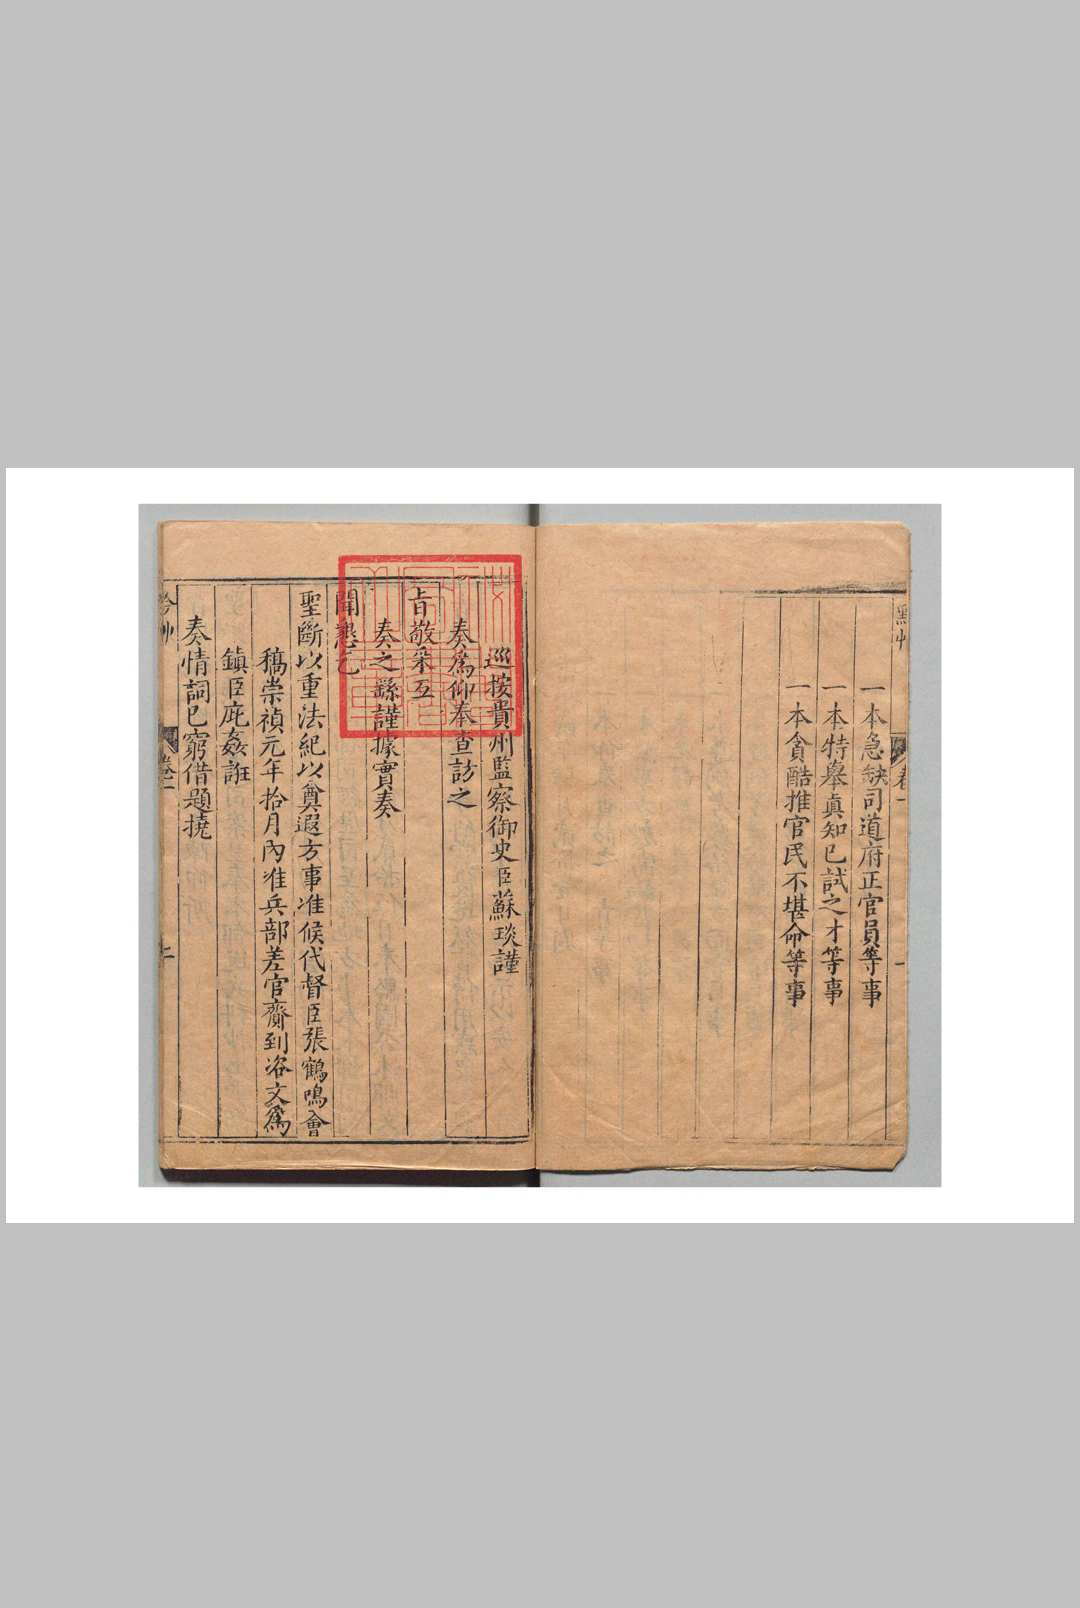 一本急缺司道府正官員等事
一本特舉眞知已試之才等事
一本貪酷推官民不堪命等事
卷一
一
巡按貴州監察御史臣蘇琰謹
奏爲仰奉查訪之
旨敬采互
奏之繇謹據實奏
聞懇乞
聖斷以重法紀以奠遐方事准候代督臣張鶴鳴會
稿崇禎元年拾月內准兵部差官齎到咨文爲
鎮臣庇姦誑
奏情詞已窮借題撓
卷一
二